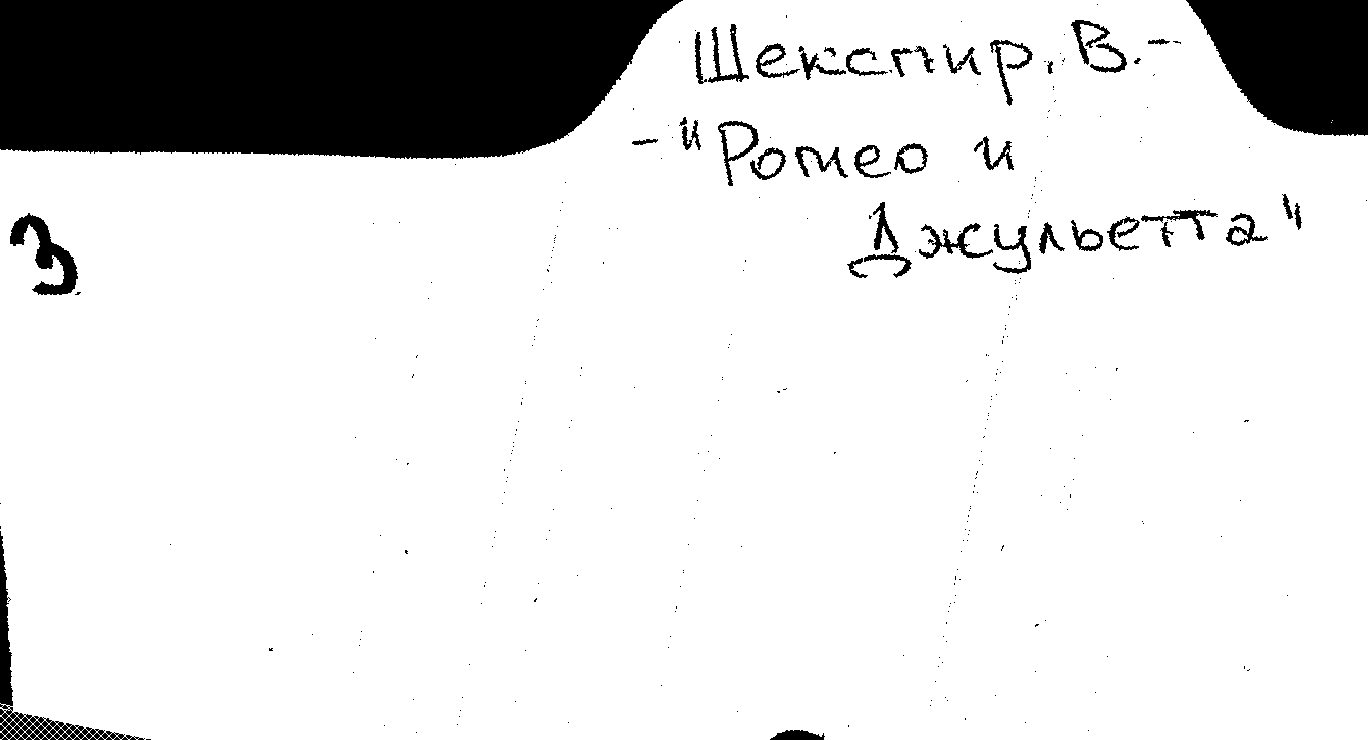 Шекспир, В.-
-"Ромео и
Джульетта"
3